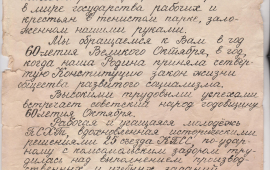 в мире государства рабочих и
крестьян в тенистом парке, зало-
женном нашими руками.
Мы обращаемся к Вам в год
60-летия Великого Октября, в год,
когда наша Родина приняла четвер-
тую Конституцию закон жизни
общества развитого социализма.
Высокими трудовыми успехами
встречает советский народ годовщину
60-летия Октября.
Рабочая и учащаяся молодёжь
вдохновленная историческими
решениями 25 съезда КПСС, по-удар-
ному, с комсомольским задором тру-
дилась над выполнением производ-
ственных и учебных заданий